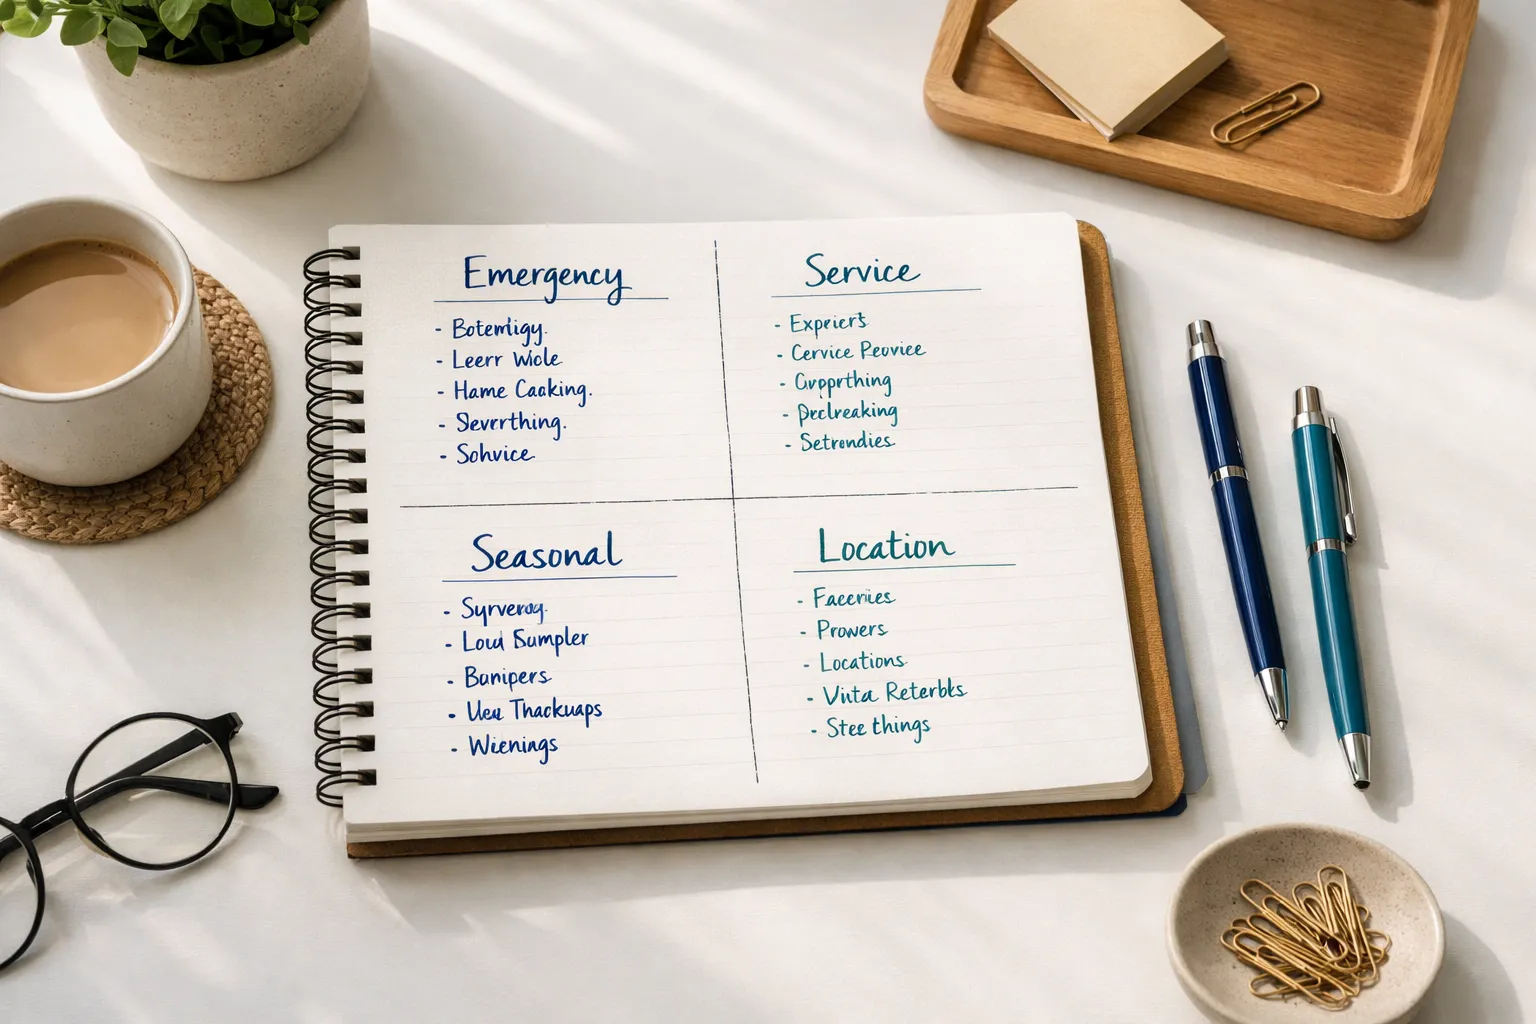 Emergency
- Botemligy.
- Leerr Wicle
- Hame Caoking.
- Severthing.
- Sohvice
Service
- Exprierts
- Cervice Peuviee
- Perlreaking
- Setrondies
Seasonal
- Syrverog.
- Loud Bumpler
- Bunipers
- Ueu Thackuaps
- Wienings
Location
- Faceries
- Prowers
- Locations
- Viita Reterbks
- Stee things